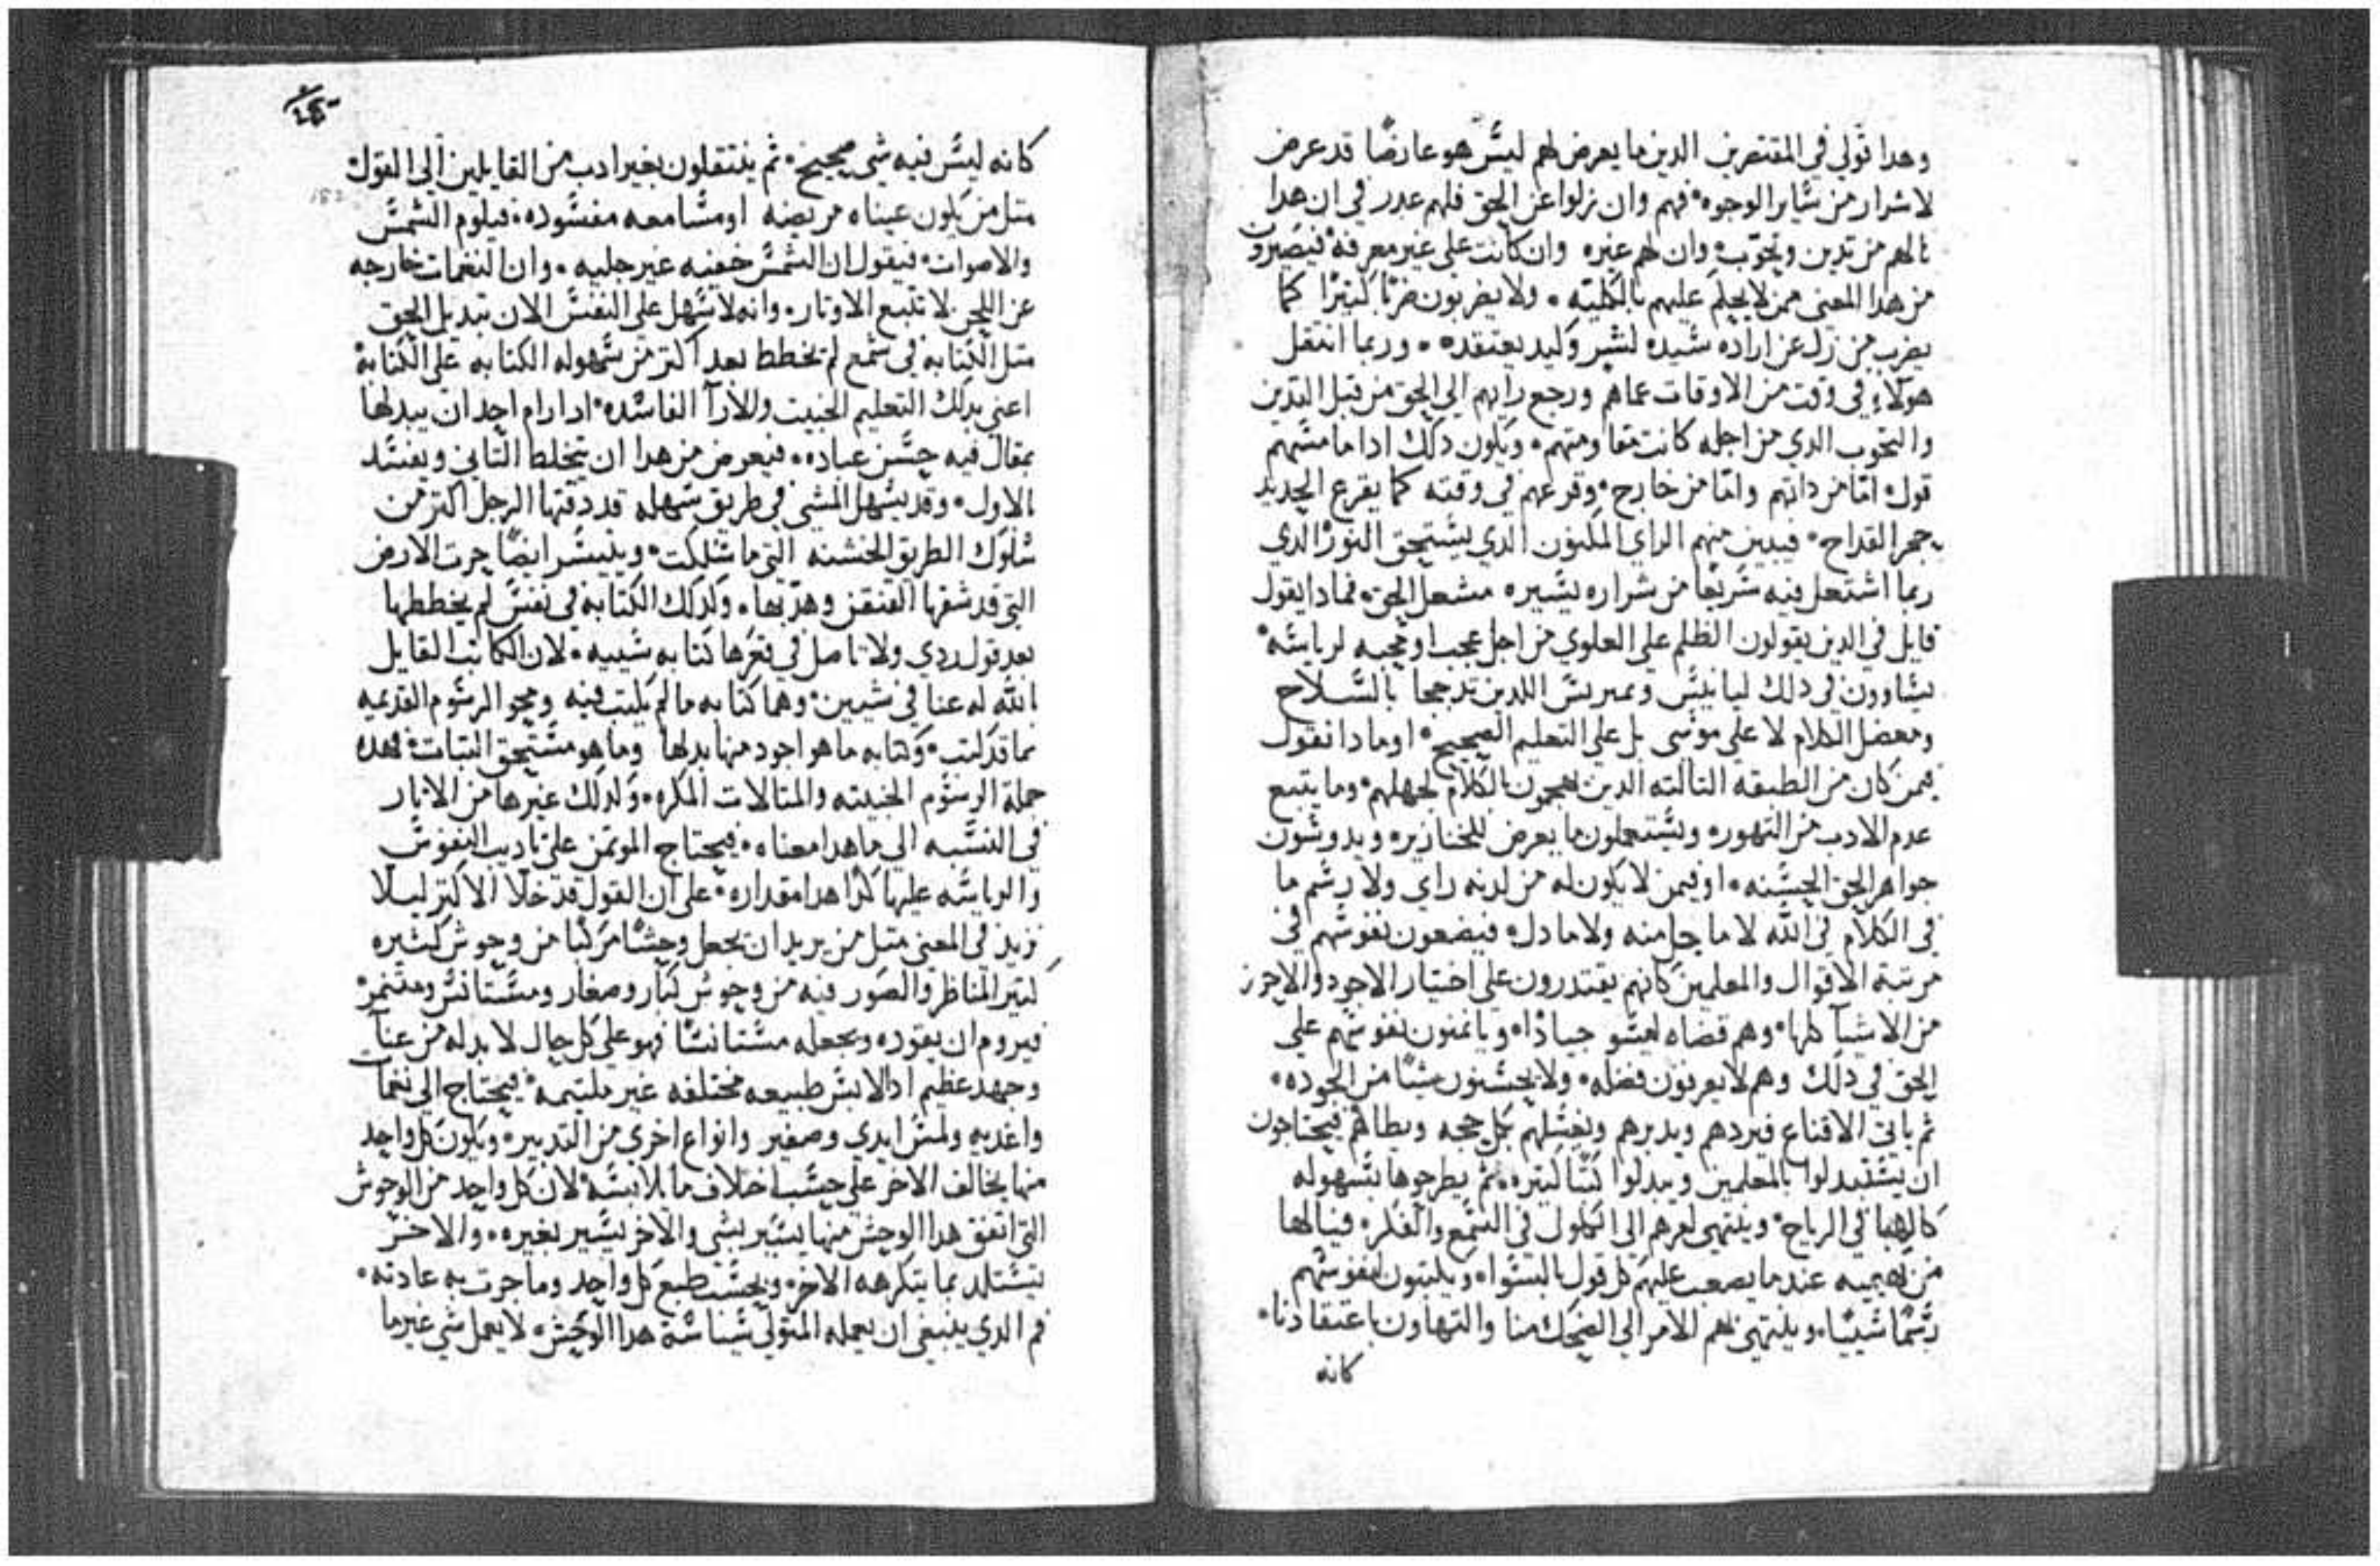 وهدا قولي في المقتصرين الدين ما يعرض لهم ليس هو عارضًا قد عرض
لاشرار من ساير الوجوه فهم وان زلوا عن الحق فلهم عدر في ان هدا
نالهم من تدين وتحوّب وان لهم غيره وان كانت على غير معرفة فيصيرون
من هدا المعنى ممن لا يحكم عليهم بالكلية ولا يضربون ضربًا كثيرًا كما
يضرب من زل عن اراده سيده لشر وكيد يعتقده وربما انتقل
هولاء في وقت من الاوقات عما هم ورجع رايهم الي الحق من قبل التدين
والتحوب الدي من اجله كانت مقاومتهم ويكون دلك ادا ما مسهم
قول امّا من داتهم وامّا من خارج وقرعهم في وقته كما يقرع الحديد
حجر القداح فيبين منهم الراي المكنون الدي يستحق النور الدي
ربما اشتعل فيه سريعًا من شراره يسيره مشعل الحق فمادا يقول
قايل في الدين يقولون الظلم على العلوي من اجل عجب او محبه لرياسة
يساوون في دلك ليانيس ويمبريس اللدين تدججا بالسلاح
ومعضل الكلام لا على موسى بل على التعليم الصحيح اومادا نقول
فيمن كان من الطبقه التالته الدين يهجمون بالكلام لجهلهم وما يتبع
عدم الادب من التهوره ويستعملون ما يعرض للخنازير ويدوسون
جواهر الحق الحسنه او فيمن لا يكون له من لدنه راي ولا رسم ما
في الكلام في الله لا ما جل منه ولا ما دل فيضعون نفوسهم في
مرتبة الاقوال والمعلمين كانهم يقتدرون على اختيار الاجود والاحرز
من الاشيآ كلها وهم قضاه ليسو جيادًا وياتمنون نفوسهم على
الحق في دلك وهم لا يعرفون فضله ولا يحسنون شيًا من الجوده
ثم ياتي الاقناع فيردهم ويدبرهم ويفسلهم بكل حجه ويطاهم فيحتاجون
ان يستبدلوا بالمعلمين ويبدلوا كتبًا كتيره ثم يطرحوها بسهوله
كالهبا في الرياح وينتهي امرهم الي الكلول في السمع والفكر فيالها
من بهيميه عندما يصعب عليهم كل قول بالسواء ويكتبون لنفوسهم
رسمًا شبيهًا وينتهي بهم الامر الي الضحك منا والتهاون باعتقادنا
كانه
كانه ليس فيه شي صحيح ثم ينتقلون بغير ادب من القايلين الي القول
متل من يكون عيناه مريضه او مسامعه مفسوده فيلوم الشمس
والاصوات فيقول ان الشمس خفيه غير جليه وان النغمات خارجه
عن اللحن لا تتبع الاوتار وانه لا سهل على النفس الان تبديل الحق
متل الكتابه في شمع لم تخطط بعد اكتر من سهوله الكتابه على الكتابة
اعني بدلك التعليم الخبيت والارآ الفاسده ادا رام احد ان يبدلها
بمقال فيه حسن عباده فيعرض من هدا ان يتخلط التاني ويفسد
الاول وقد يسهل المشي في طريق سهله قد دقتها الرجل اكتر من
سلوك الطريق الخشنه التي ما سلكت ويتيسر ايضًا حرت الارض
التي قد شقها الفنقز وهدّبها وكدلك الكتابه في نفس لم يخططها
بعد قول ردي ولا تاصل في قعرها كتابه شيبيه لان الكاتب القايل
بالله له عنا في شيين وهما كتابه ما لم يكتب فيه ومحو الرسوم القديمه
مما قد كتب وكتابه ما هو اجود منها بدلها وما هو مستحق التبات فهده
جملة الرسوم الخبيته والمتالات المكره وكدلك غيرها من الاتار
في النسبه الي ما هدا معناه فيحتاج الموتمن على تاديب النفوس
والرياسه عليها كدا هدا مقداره على ان القول قد خلا الاكتر ليلا
نزيد في المعنى متل من يريد ان يجعل وحشًا مركبًا من وحوش كثيره
كتير المناظر والصور فيه من وحوش كبار وصغار ومستانس ومتنمر
فيروم ان يقوده ويجعله مستانسًا فهو على كل حال لا بد له من عنآ
وجهد عظيم اد لابس طبيعه مختلفه غير ملتيمه فيحتاج الي نغمات
واغديه ولمس ايدي وصفير وانواع اخري من التدبير ويكون كل واحد
منها يخالف الاخر على حسب اختلاف ما يلابسه لان كل واحد من الوحوش
التي اتفق هدا الوحش منها يسير بشي والاخر يسير بغيره والاخر
يستلد بما يتكرهه الاخر وبحسب طبع كل واحد وما جرت به عادته
فم الدي ينبغي ان يعمله المتولي سياسة هدا الوحش لا يعمل شي غير ما